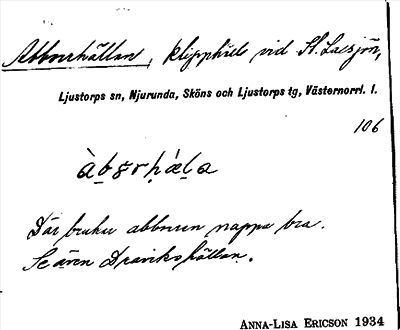 Abborrhällan, klipphäll vid St. Laxsjön,
Ljustorps sn, Njurunda, Sköns och Ljustorps tg, Västernorrl. l.
106
Där brukar abborren nappa bra.
Se även Dravikshällan.
ANNA-LISA ERICSON 1934